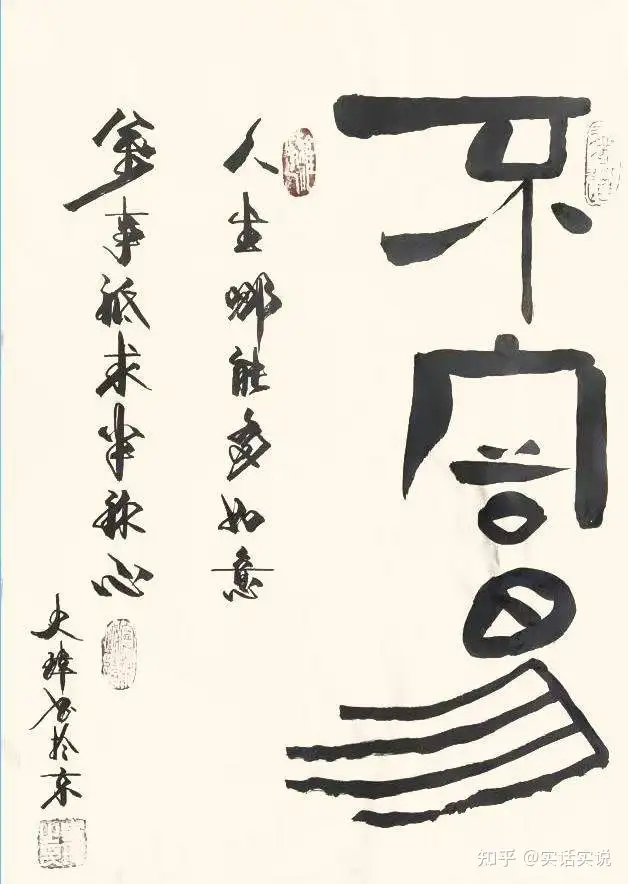 不容易
人生哪能多如意
萬事祗求半称心
大书於京
知乎 @实话实说